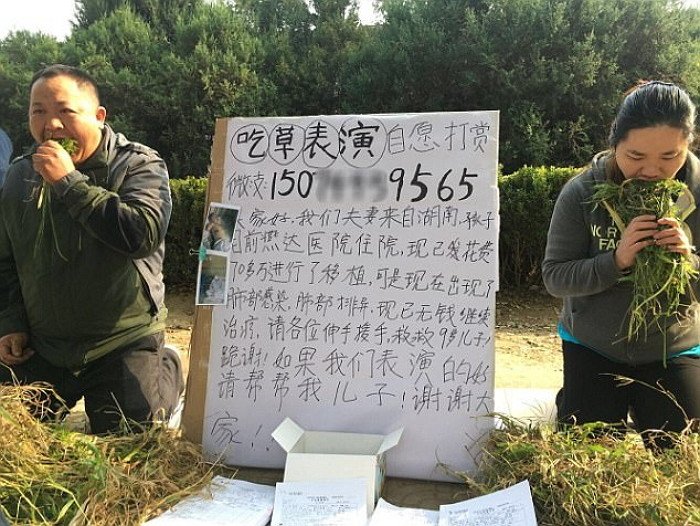 吃草表演 自愿打赏
微支:150 9565
大家好,我们夫妻来自湖南,孩子
目前燕达医院住院,现已发花费
70多万进行了移植,可是现在出现了
肺部感染,肺部排异,现已无钱继续
治疗,请各位伸手援手,救救9岁儿子!
跪谢!如果我们表演的好
请帮帮我儿子!谢谢大
家!!
NOR
FAC